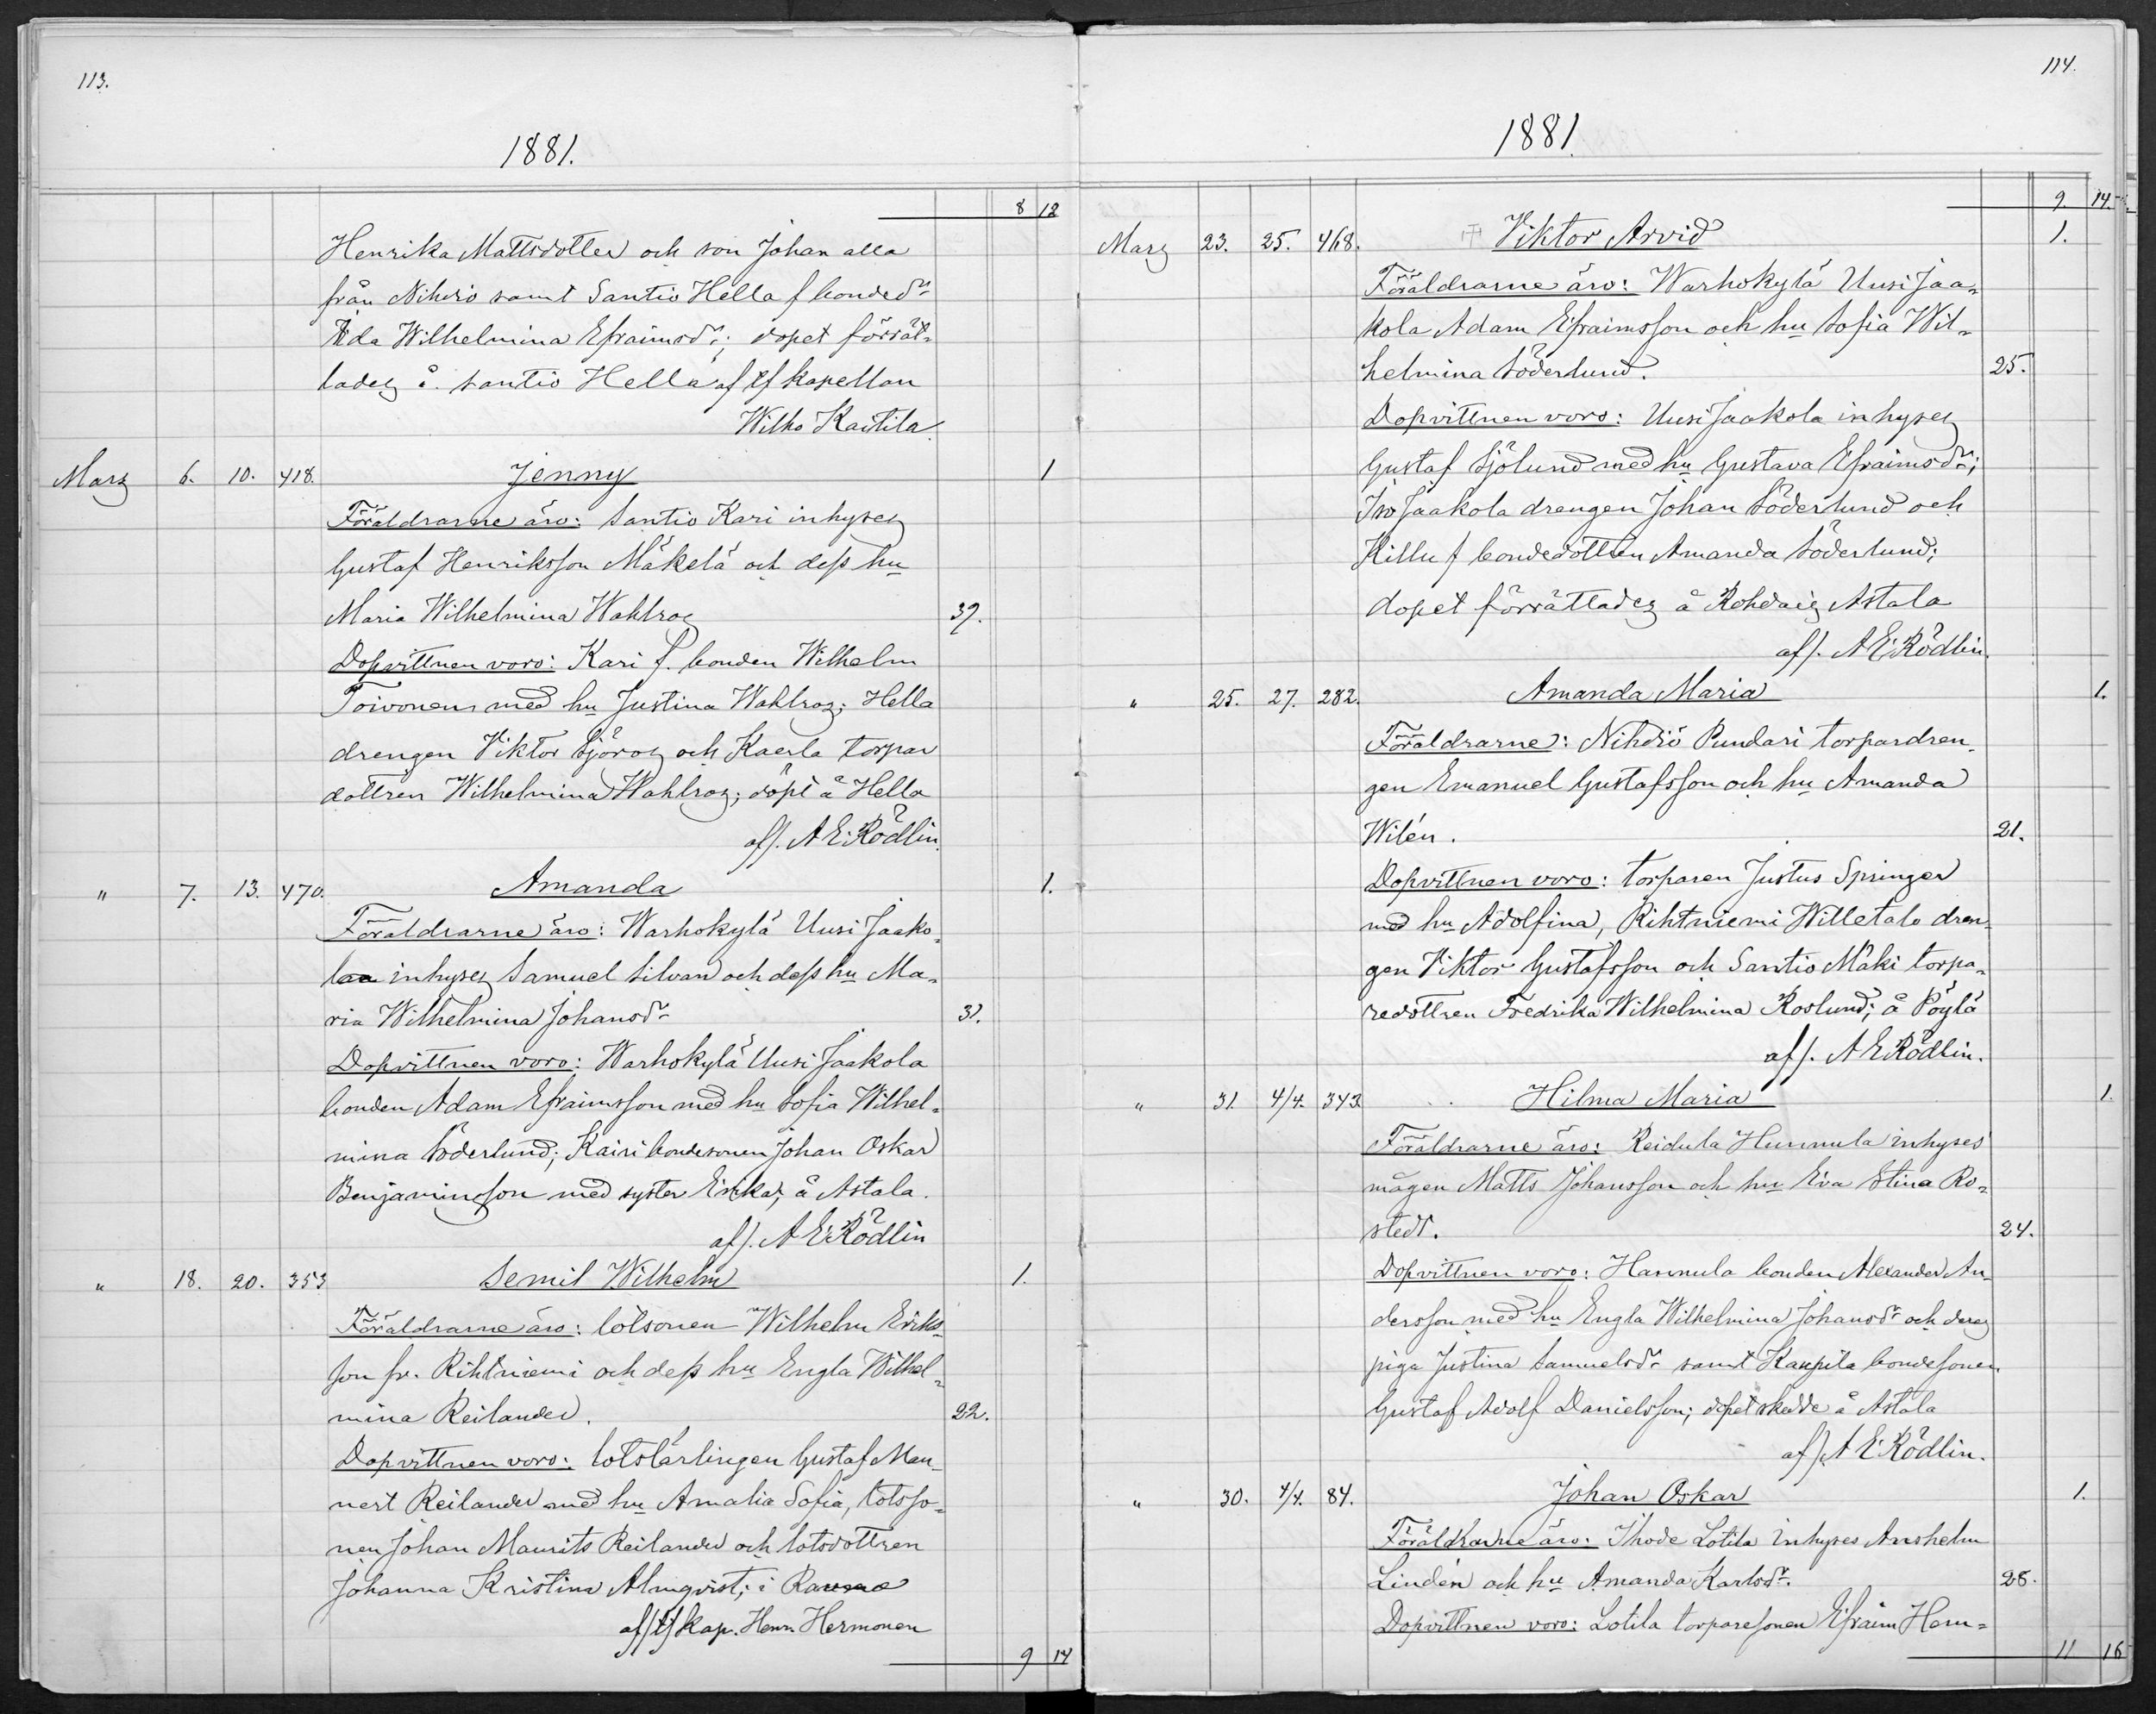 113.
1881.
8 12
Henrika Mattsdotter och son Johan alla
från Nihdiö samt Santio Hella f bonded:r
Ida Wilhelmina Efraimsd:r; dopet förrät-
tades å Santio Hella af tf kapellan
Wilho Kaitila
Mars 6. 10. 418. Jenny 1
Föräldrarne äro: Santio Kari inhyses
Gustaf Henriksson Mäkelä och dess hu
Maria Wilhelmina Wahlros 39.
Dopvittnen voro: Kari f. bonden Wilhelm
Toivonen med hu Justina Wahlros; Hella
drengen Viktor Sjöros och Kaerla torpar
dottren Wilhelmina Wahlros; döpt å Hella
af/. A E. Rödlin.
" 7. 13. 470. Amanda 1.
Föräldrarne äro: Warhokylä Uusi Jaako-
la inhyses Samuel Silvan och dess hu Ma-
ria Wilhelmina Johansd:r 31.
Dopvittnen voro: Warhokylä Uusi Jaakola
bonden Adam Efraimsson med hu Sofia Wilhel-
mina Söderlund; Kairi bondesonen Johan Oskar
Benjaminsson med syster Erika; å Astala.
af/. A E. Rödlin
" 18. 20. 353 Semil Wilhelm 1.
Föräldrarne äro: lotsonen Wilhelm Eriks-
son fr. Rihtniemi och dess hu Engla Wilhel-
mina Reilander. 22.
Dopvittnen voro: lotslärlingen Gustaf Man-
nert Reilander med hu Amalia Sofia, lotsso-
nen Johan Maurits Reilander och lotsdottren
Johanna Kristina Almqvist; i Raumo
af/ tf kap. Henr. Hermonen
9 14
114.
1881.
9. 14.
Mars 23. 25. 468. Viktor Arvid 1.
Föräldrarne äro: Warhokylä Uusi Jaa-
kola Adam Efraimsson och hu Sofia Wil-
helmina Söderlund. 25.
Dopvittnen voro: Uusi Jaakola inhyses
Gustaf Sjölund med hu Gustava Efraimsd:r;
Iso Jaakola drengen Johan Söderlund och
Killu f bondedottren Amanda Söderlund;
dopet förrättades å Rohdais Astala
af/. A E. Rödlin.
" 25. 27. 282. Amanda Maria 1.
Föräldrarne: Nihdiö Pundari torpardren-
gen Emanuel Gustafsson och hu Amanda
Wilén. 21.
Dopvittnen voro: torparen Justus Springer
med hu Adolfina, Rihtniemi Willetalo dren-
gen Viktor Gustafsson och Santio Mäki torpa-
redottren Fredrika Wilhelmina Roslund; å Pöylä
af/. A E Rödlin.
" 31. 4/4. 343. Hilma Maria 1.
Föräldrarne äro: Reidula Hunnula inhyses
mågen Matts Johansson och hu Eva Stina Ro-
stedt. 24.
Dopvittnen voro: Hannula bonden Alexander An-
dersson med hu Engla Wilhelmina Johansd:r och deras
piga Justina Samuelsd:r samt Kaupila bondesonen
Gustaf Adolf Danielsson; dopet skedde å Astala
af/. A E. Rödlin.
" 30. 4/4. 84. Johan Oskar 1.
Föräldrarne äro: Ihode Lotila inhyses Anshelm
Lindén och hu Amanda Karlsd:r. 28.
Dopvittnen voro: Lotila torparesonen Efraim Herm-
11 16